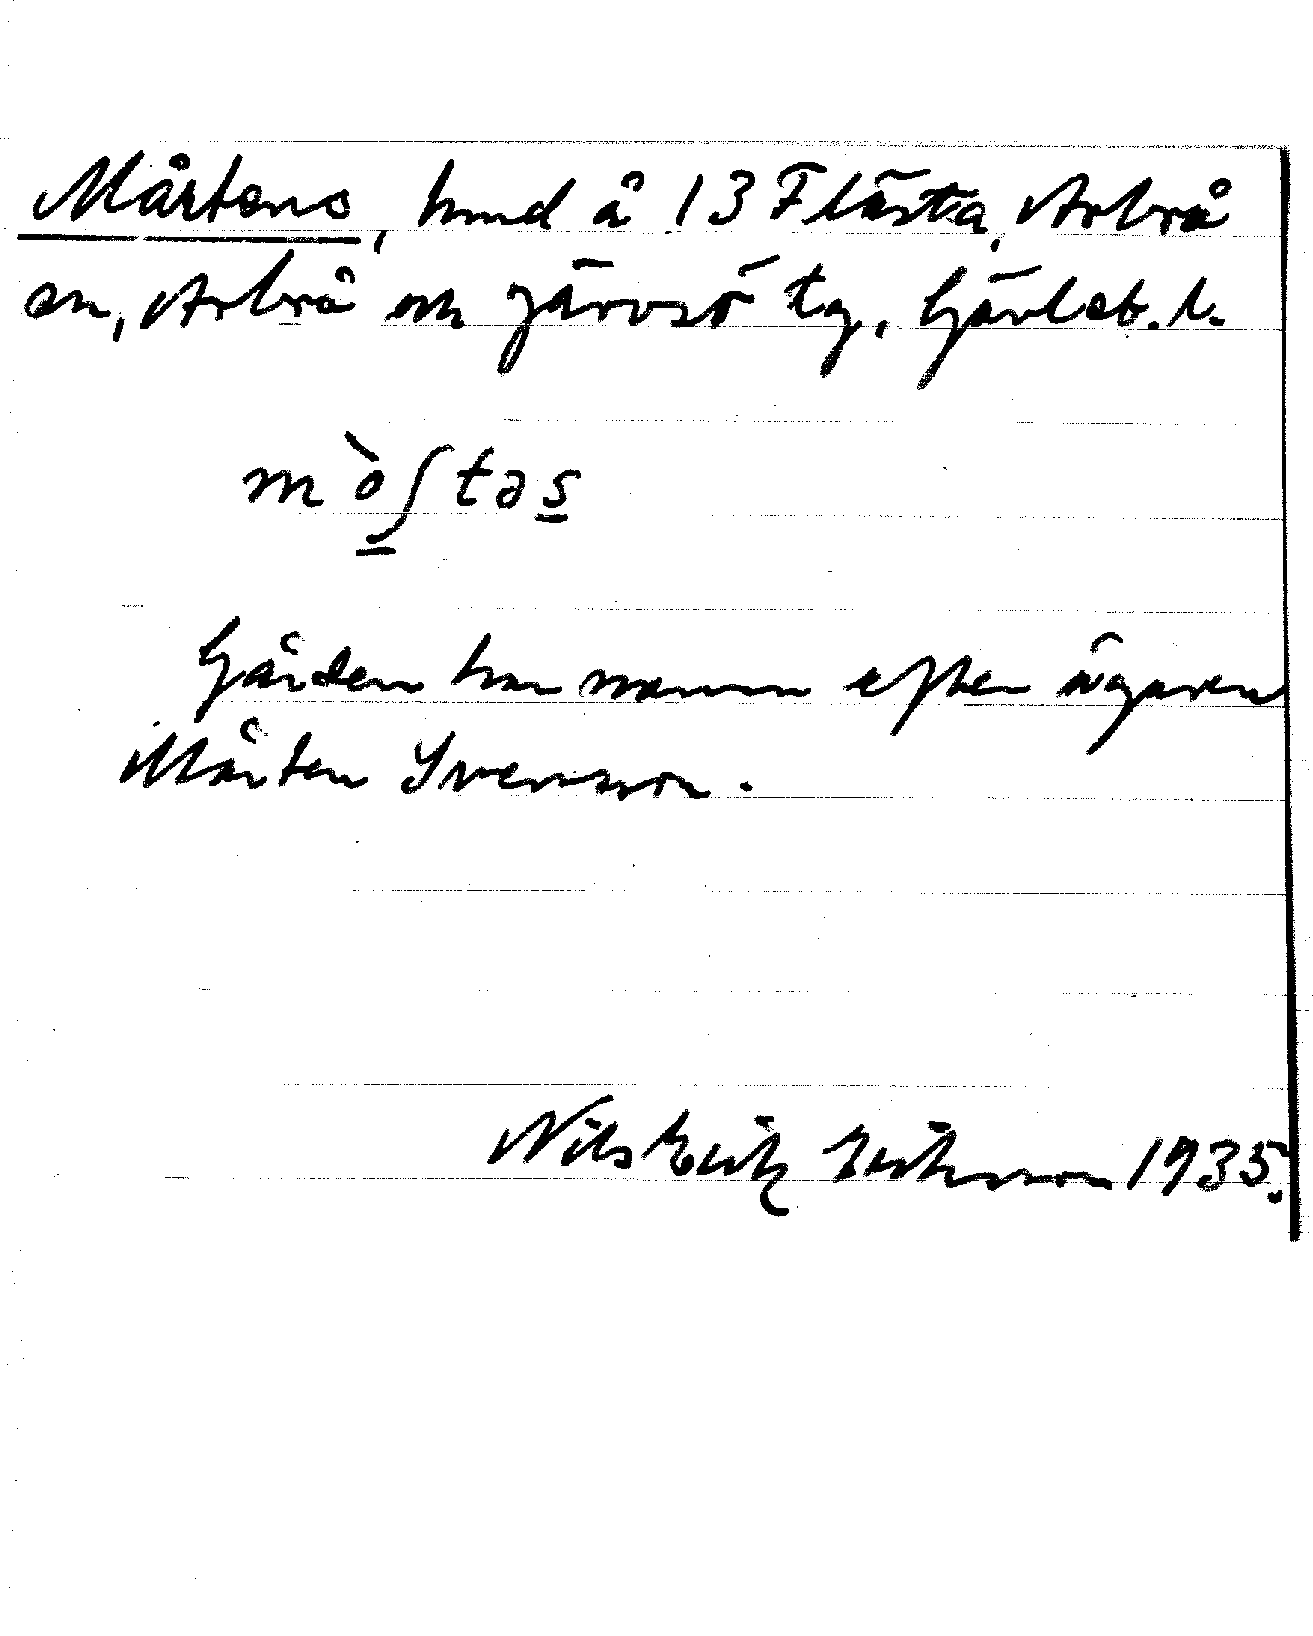 Mårtens, hmd å 13 Flästa, Arbrå
sn, Arbrå och Järvsö tg, Gävleb. l.
mò̀ʃtəs
Gården har namn efter ägaren
Mårten Svensson.
Nils Erik Eriksson 1935.